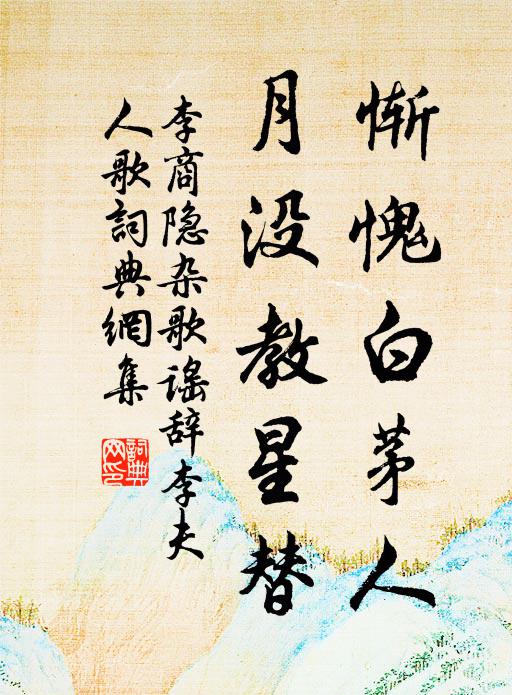 惭愧白茅人
月没教星替
李商隐杂歌谣辞李夫
人歌詞典網集
詞典
网印